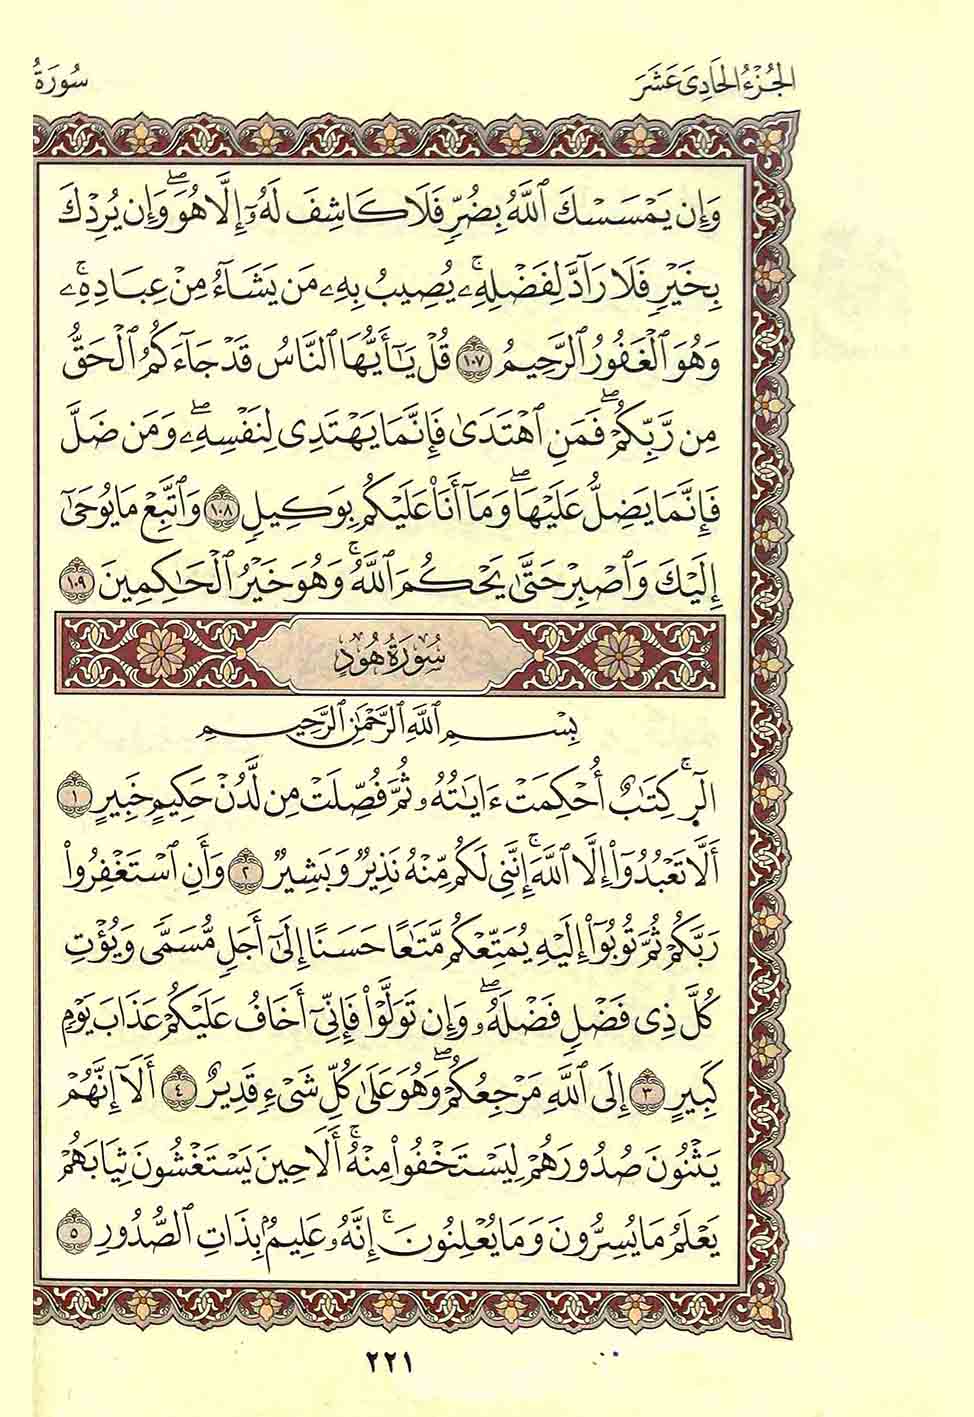 الجُزْءُ الحَادِي عَشَرَ
سُورَةُ
وَإِن يَمْسَسْكَ ٱللَّهُ بِضُرٍّ فَلَا كَاشِفَ لَهُۥٓ إِلَّا هُوَۖ وَإِن يُرِدْكَ
بِخَيْرٍ فَلَا رَآدَّ لِفَضْلِهِۦۚ يُصِيبُ بِهِۦ مَن يَشَآءُ مِنْ عِبَادِهِۦۚ
وَهُوَ ٱلْغَفُورُ ٱلرَّحِيمُ ١٠٧ قُلْ يَـٰٓأَيُّهَا ٱلنَّاسُ قَدْ جَآءَكُمُ ٱلْحَقُّ
مِن رَّبِّكُمْۖ فَمَنِ ٱهْتَدَىٰ فَإِنَّمَا يَهْتَدِى لِنَفْسِهِۦۖ وَمَن ضَلَّ
فَإِنَّمَا يَضِلُّ عَلَيْهَاۖ وَمَآ أَنَا۠ عَلَيْكُم بِوَكِيلٍ ١٠٨ وَٱتَّبِعْ مَا يُوحَىٰٓ
إِلَيْكَ وَٱصْبِرْ حَتَّىٰ يَحْكُمَ ٱللَّهُۚ وَهُوَ خَيْرُ ٱلْحَـٰكِمِينَ ١٠٩
سُورَةُ هُودٍ
بِسْمِ ٱللَّهِ ٱلرَّحْمَـٰنِ ٱلرَّحِيمِ
الٓرۚ كِتَـٰبٌ أُحْكِمَتْ ءَايَـٰتُهُۥ ثُمَّ فُصِّلَتْ مِن لَّدُنْ حَكِيمٍ خَبِيرٍ ١
أَلَّا تَعْبُدُوٓا۟ إِلَّا ٱللَّهَۚ إِنَّنِى لَكُم مِّنْهُ نَذِيرٌ وَبَشِيرٌ ٢ وَأَنِ ٱسْتَغْفِرُوا۟
رَبَّكُمْ ثُمَّ تُوبُوٓا۟ إِلَيْهِ يُمَتِّعْكُم مَّتَـٰعًا حَسَنًا إِلَىٰٓ أَجَلٍ مُّسَمًّى وَيُؤْتِ
كُلَّ ذِى فَضْلٍ فَضْلَهُۥۖ وَإِن تَوَلَّوْا۟ فَإِنِّىٓ أَخَافُ عَلَيْكُمْ عَذَابَ يَوْمٍ
كَبِيرٍ ٣ إِلَى ٱللَّهِ مَرْجِعُكُمْۖ وَهُوَ عَلَىٰ كُلِّ شَىْءٍ قَدِيرٌ ٤ أَلَآ إِنَّهُمْ
يَثْنُونَ صُدُورَهُمْ لِيَسْتَخْفُوا۟ مِنْهُۚ أَلَا حِينَ يَسْتَغْشُونَ ثِيَابَهُمْ
يَعْلَمُ مَا يُسِرُّونَ وَمَا يُعْلِنُونَۚ إِنَّهُۥ عَلِيمٌۢ بِذَاتِ ٱلصُّدُورِ ٥
٢٢١